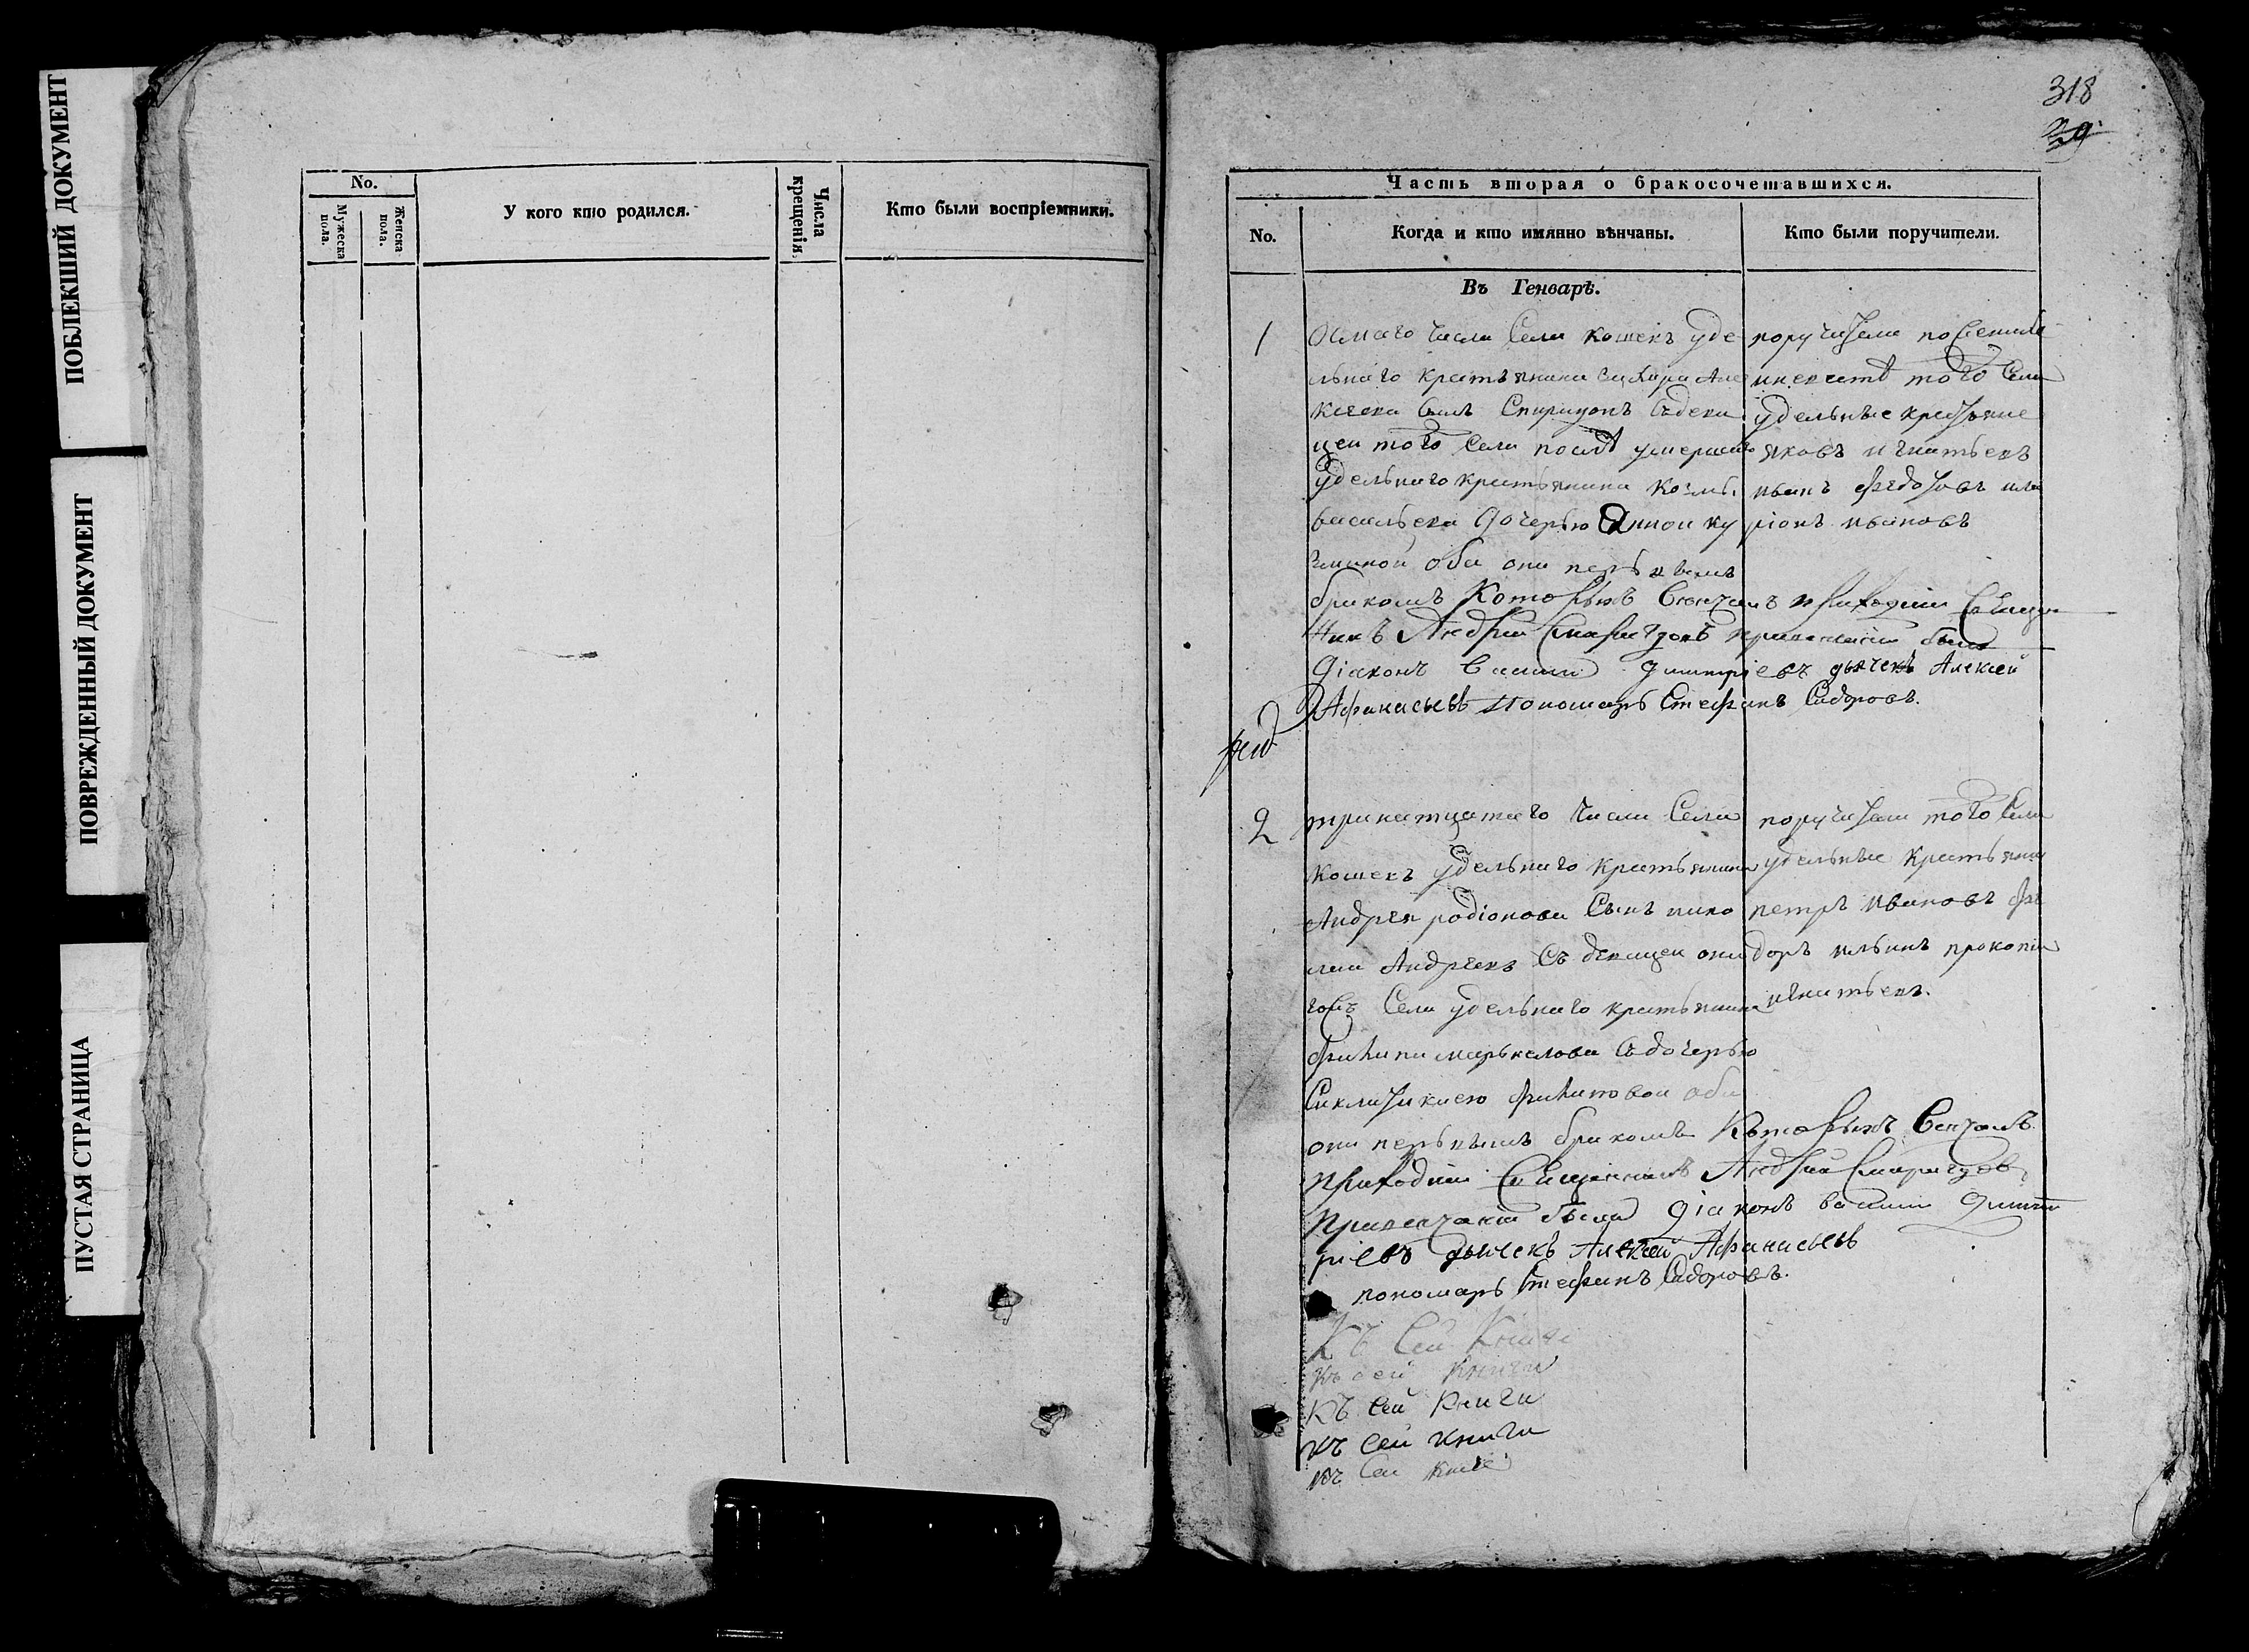 ПОБЛЕКШИЙ ДОКУМЕНТ
ПОВРЕЖДЕННЫЙ ДОКУМЕНТ
ПУСТАЯ СТРАНИЦА
No.
Мужеска пола.
Женска пола.
У кого кто родился.
Числа крещенія.
Кто были воспріемники.
318
29
Часть вторая о бракосочетавшихся.
No.
Когда и кто имянно вѣнчаны.
Кто были поручители.
Въ Генварѣ.
1
Осмаго числа Села кошекъ уде
льнаго крестьянина Але
ксеева сынъ Спиридонъ съ деви
цеи того Села послѣ умершаго
удельнаго крестьянина козмы
васильева дочерью Анною ку
зминой оба они первымъ
бракомъ Которыхъ венчалъ приходскии Священ
никъ Андреи привенчании были
діаконъ василии димитріевъ дьячекъ Алексей
Афанасьевъ пономарь Стефанъ Сидоровъ.
поручители по
того Села
удельные крестьяне
яковъ игнатьевъ
иванъ федотовъ ила
ріонъ ивановъ
2
тринатцатаго числа Села
кошекъ удельнаго крестьянина
Андрея родіонова Сынъ нико
лаи Андреевъ Съ девицеи оны
Села удельнаго крестьянина
филипа дочерью
филиповои оба
они первымъ бракомъ Которыхъ венчалъ
приходскии Священникъ Андреи
привенчании были діаконъ василии димит
ріевъ дьячекъ Алексей Афанасьевъ
пономарь Стефанъ Сидоровъ.
поручители того Села
удельные крестьяне
петръ ивановъ фе
доръ ильинъ прокопіи
игнатьевъ.
Къ Сей Книги
къ сей книги
Къ Сей Книги
къ Сей книги
къ Сей книге